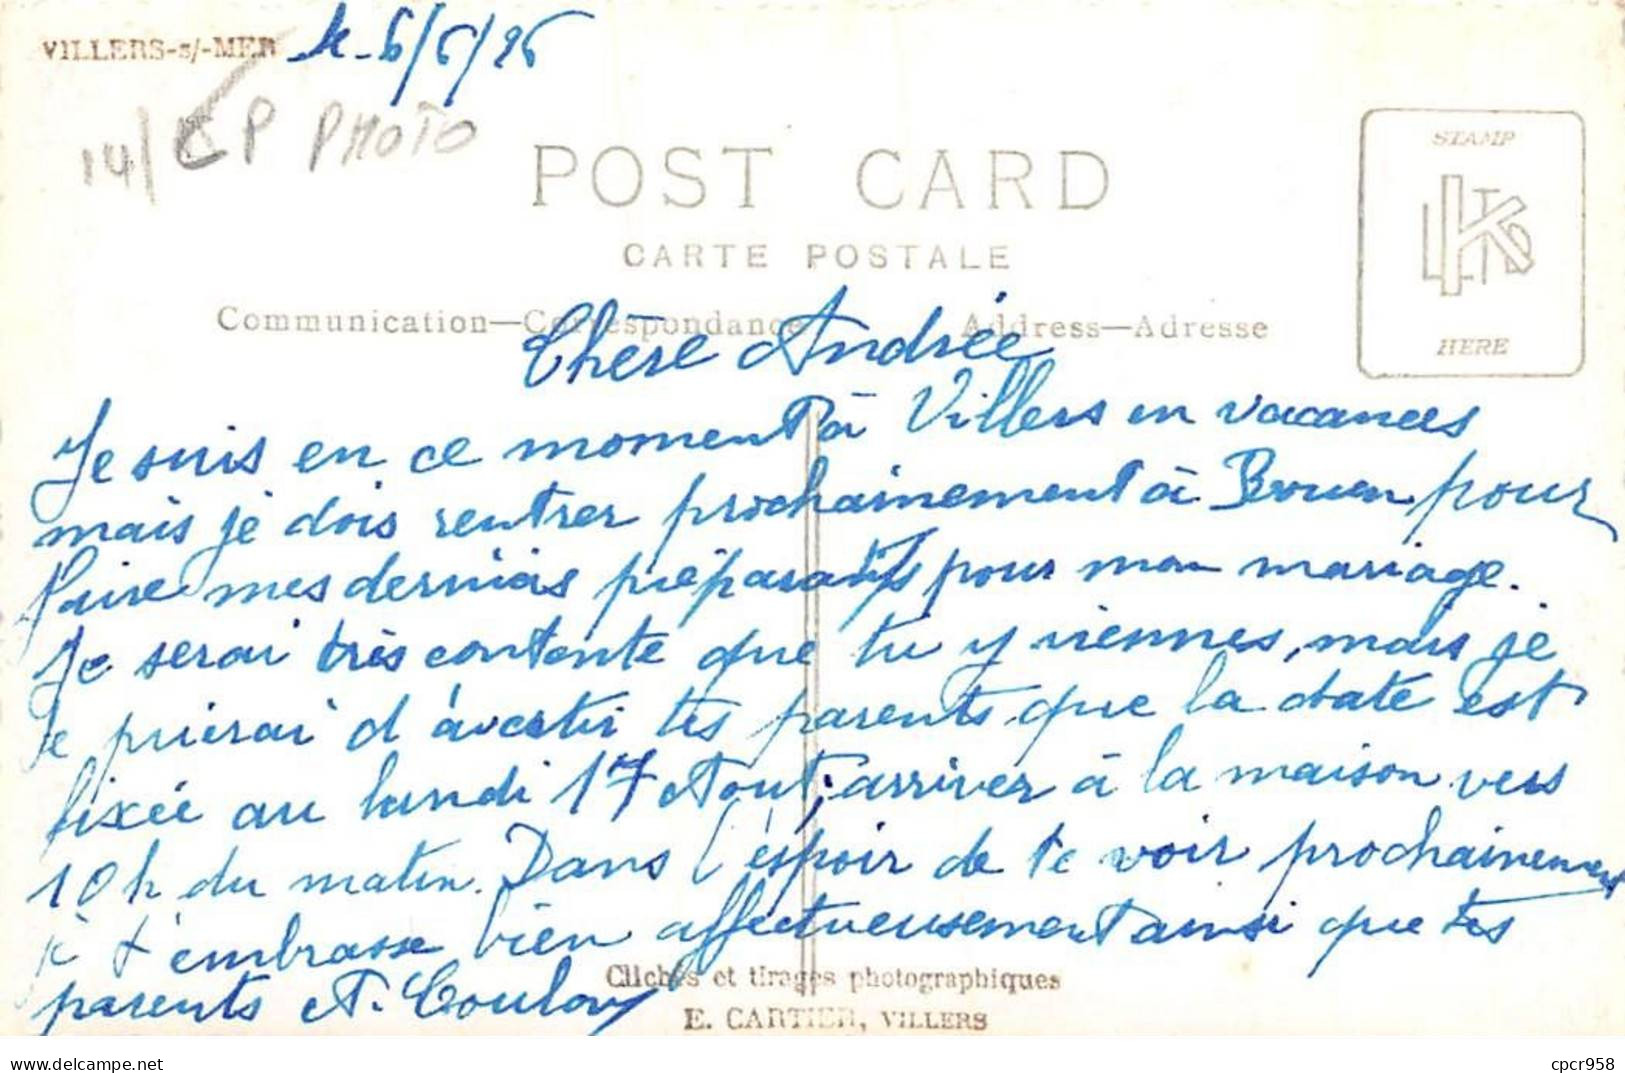 VILLERS-s/-MER le 6/5/26
14/ CP PHOTO
POST CARD
CARTE POSTALE
STAMP
LKTD
HERE
Communication—Correspondance Address—Adresse
Chère Andrée
Je suis en ce moment à Villers en vacances
mais je dois rentrer prochainement à pour
faire mes derniers préparatifs pour mon mariage.
Je serai très contente que tu y viennes, mais je
te prierai d'avertir tes parents que la date est
fixée au lundi 17 Aout; arriver à la maison vers
10h du matin. Dans l'espoir de te voir prochainement
je t'embrasse bien affectueusement ainsi que tes
parents A.
Clichés et tirages photographiques
E. CARTIER, VILLERS
delcampe.net
cpcr958